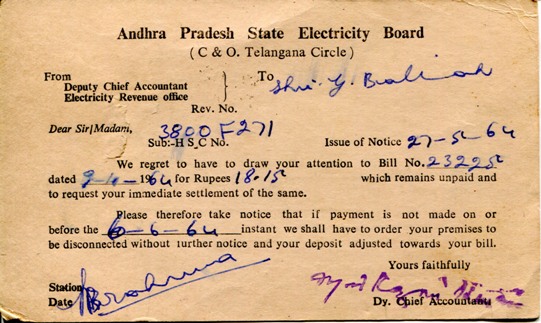 Andhra Pradesh State Electricity Board
(C & O. Telangana Circle)
From
Deputy Chief Accountant
Electricity Revenue office
To
Shri. G.
Rev. No.
Dear Sir|Madam,
Sub:-H S C No. 3800 F271
Issue of Notice 27-5-64
We regret to have to draw your attention to Bill No. 23225
dated 9-4-1964 for Rupees 18.15 which remains unpaid and
to request your immediate settlement of the same.
Please therefore take notice that if payment is not made on or
before the 6-6-64 instant we shall have to order your premises to
be disconnected without turther notice and your deposit adjusted towards your bill.
Yours faithfully
Station
Date
Dy. Chief Accountant